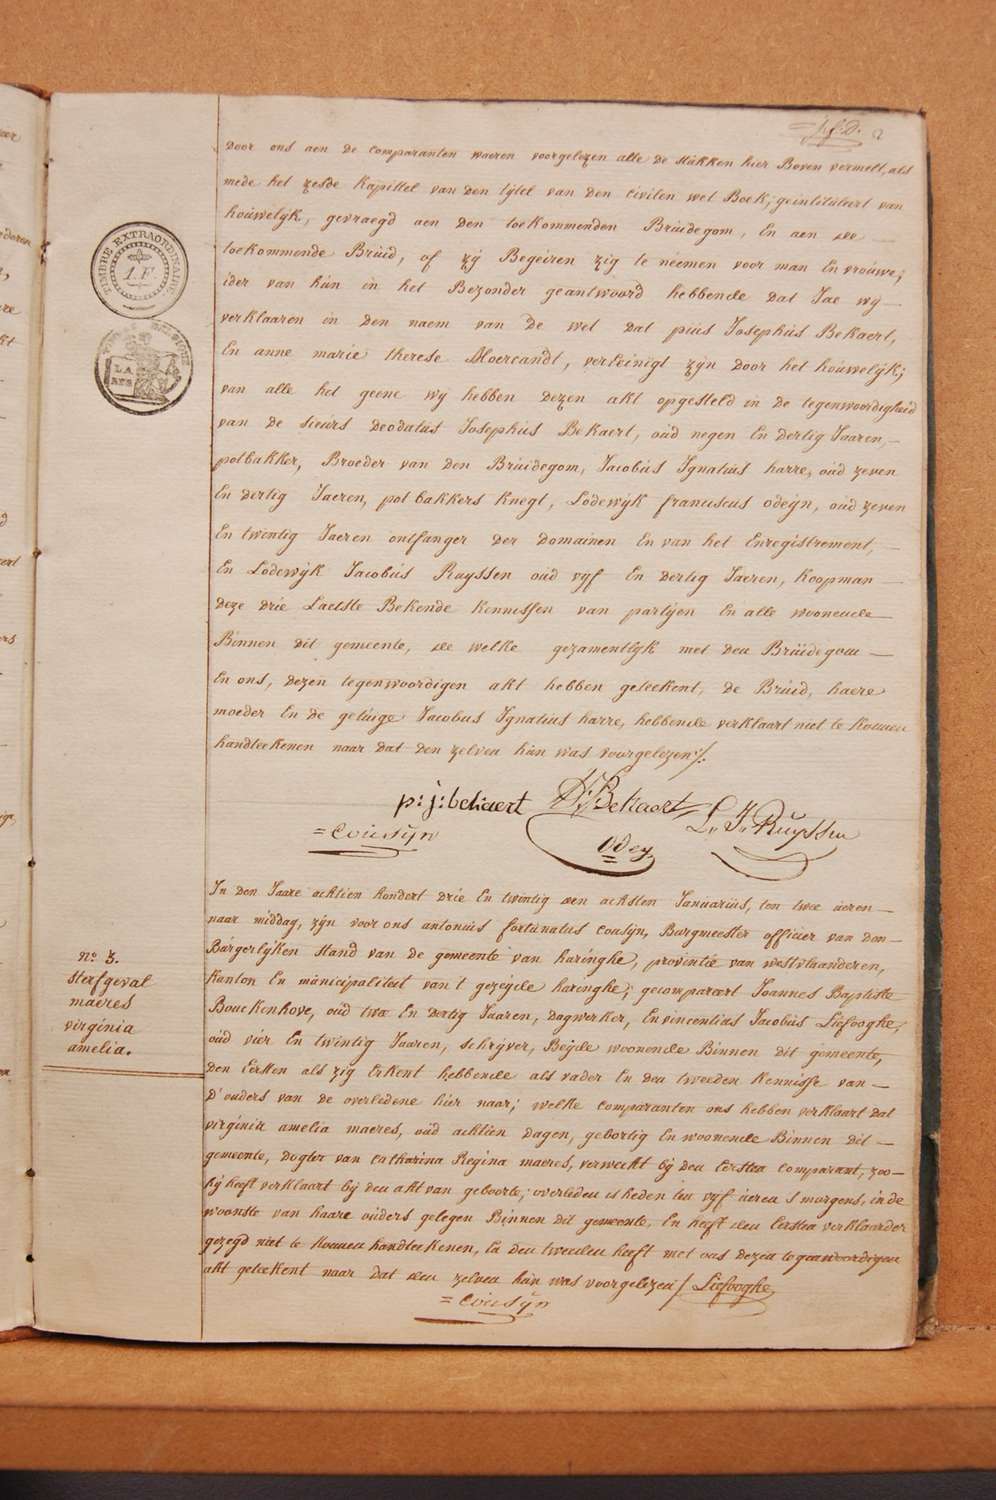 Door ons aen de comparanten waeren voorgelezen alle de stukken hier Boven vermelt, als
mede het zesde Kapittel van den tytel van den civilen wet Boek, geintituleert van
houwelyk, gevraegd aen den toekommenden Bruidegom, En aen de
toekommende Bruid, of zy Begeiren zig te neemen voor man En vrouwe;
ider van hun in het Bezonder geantwoord hebbende dat Jae wy
verklaaren in den naem van De wet dat pius Josephus Bekaert,
En anne marie therese Moercandt, vereinigt zyn door het houwelyk;
van alle het geene wy hebben dezen akt opgesteld in de tegenwoordigheid
van de sieurs Deodatus Josephus Bekaert, oud negen En dertig Jaaren,
potbakker, Broeder van den Bruidegom, Jacobus Ignatius harre, oud zeven
En dertig Jaeren, potbakkers knegt, Lodewyk franciscus odeÿn, oud zeven
En twintig Jaeren ontfanger der Domainen En van het Enregistrement,
En Lodewyk Jacobus Ruyssen oud vyf En dertig Jaeren, Koopman
deze drie Laetste Bekende Kennissen van partyen En alle woonende
Binnen dit gemeente, de welke gezamentlyk met den Bruidegom
En ons, dezen tegenwoordigen akt hebben geteekent, de Bruid, haere
moeder En de getuige Jacobus Ignatius harre, hebbende verklaart niet te konnen
handteekenen naar dat den zelven hun was voorgelezen ./.
p: j: bekaert D.J. Bekaert L. J. Ruyssen
= Cousÿn Odeÿ
TIMBRE EXTRAORDINAIRE.
1. F.
In den Jaare achtien hondert drie En twintig den achsten Januarius, ten twee ueren
naar middag, zÿn voor ons antonius fortunatus cousÿn, Burgmeester officier van den
Burgerlyken stand van de gemeente van haringhe, provintie van westvlaanderen,
Kanton En municipaliteit van 't gezeyde haringhe; gecomparaert Joannes Baptiste
Bouckenhove, oud twee En dertig Jaaren, dagwerker, En vincentius Jacobus Liefooghe,
oud vier En twintig Jaaren, schryver, Beyde woonende Binnen dit gemeente,
den Eersten als zig Erkent hebbende als vader En den tweeden Kennisse van
D'ouders van de overledene hier naar; welke comparanten ons hebben verklaart dat
virginia amelia maeres, oud achtien dagen, geboortig En woonende Binnen dit
gemeente, Dogter van catharina Regina maeres, verwerkt by den Eersten comparant, zoo
hy heeft verklaart by den akt van geboorte; overleden is heden ten vyf ueren s morgens, in de
woonste van haare ouders gelegen Binnen dit gemeente, En heeft den Eersten verklaarder
gezegd niet te konnen handteekenen, En den tweeden heeft met ons dezen tegenwoordigen
akt geteekent naar dat den zelven hun was voorgelezen ./. Liefooghe
= Cousÿn
n.o 3.
sterfgeval
maeres
virginia
amelia.